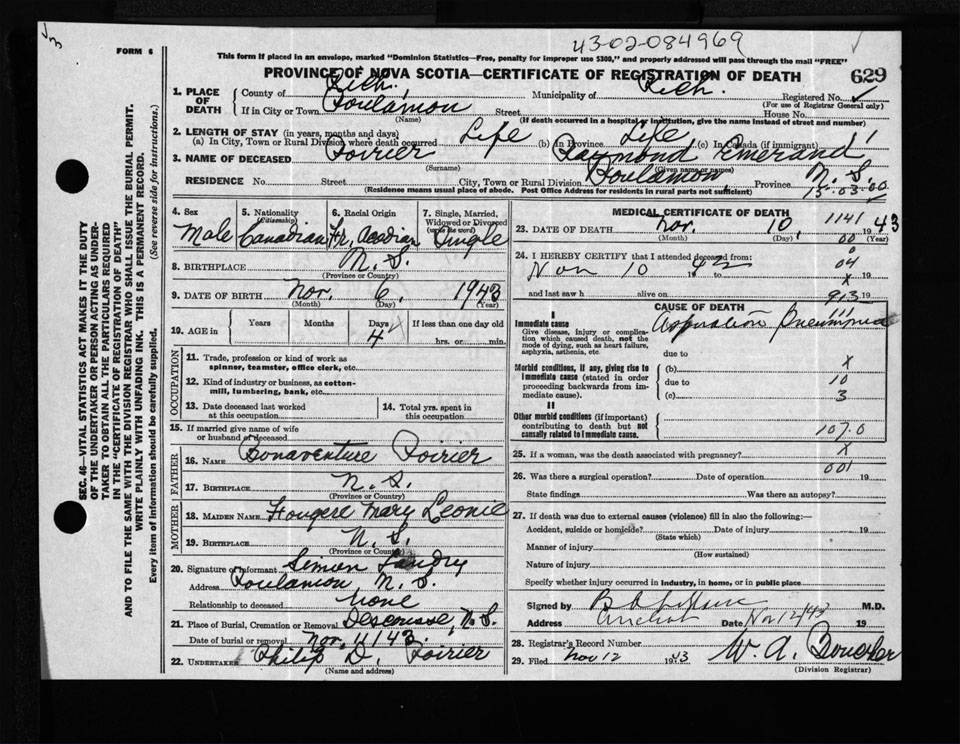 43-02-084969
FORM 6
This form if placed in an envelope, marked "Dominion Statistics—Free, penalty for improper use $300," and properly addressed will pass through the mail "FREE"
PROVINCE OF NOVA SCOTIA—CERTIFICATE OF REGISTRATION OF DEATH 629
1. PLACE OF DEATH
County of Rich. Municipality of Rich. Registered No.
(For use of Registrar General only)
If in City or Town Poulamon Street House No.
(Name) (If death occurred in a hospital or institution, give the name instead of street and number)
2. LENGTH OF STAY (in years, months and days)
(a) In City, Town or Rural Division where death occurred Life (b) in Province Life (c) In Canada (if immigrant)
3. NAME OF DECEASED Poirier Raymond Emerand
(Surname) (Given name or names)
RESIDENCE No. Street City, Town or Rural Division Poulamon, Province N. S.
(Residence means usual place of abode. Post Office Address for residents in rural parts not sufficient) 15-03-00
4. Sex 5. Nationality (Citizenship) 6. Racial Origin 7. Single, Married, Widowed or Divorced (write the word)
Male Canadian Fr. Acadian Single
8. BIRTHPLACE N. S.
(Province or Country)
9. DATE OF BIRTH Nov. 6, 1943
(Month) (Day) (Year)
10. AGE in Years Months Days If less than one day old
4 hrs. or min.
OCCUPATION
11. Trade, profession or kind of work as spinner, teamster, office clerk, etc.
12. Kind of industry or business, as cotton-mill, lumbering, bank, etc.
13. Date deceased last worked at this occupation 14. Total yrs. spent in this occupation
15. If married give name of wife or husband of deceased
FATHER
16. NAME Bonaventure Poirier
17. BIRTHPLACE N. S.
(Province or Country)
MOTHER
18. MAIDEN NAME Fougere Mary Leonie
19. BIRTHPLACE N. S.
(Province or Country)
20. Signature of Informant Simon Landry
Address Poulamon N. S.
Relationship to deceased None
21. Place of Burial, Cremation or Removal Descousse, N. S.
Date of burial or removal Nov. 11/43.
22. UNDERTAKER Philip D. Poirier
(Name and address)
MEDICAL CERTIFICATE OF DEATH 1141
23. DATE OF DEATH Nov. 10, 43
(Month) (Day) 00 (Year)
24. I HEREBY CERTIFY that I attended deceased from: 0
Nov 10 19 43 to 04 19
x
and last saw h alive on 913 19
CAUSE OF DEATH 111
I
Immediate cause Aspiration Pneumonia
Give disease, injury or complication which caused death, not the mode of dying, such as heart failure, asphyxia, asthenia, etc.
due to
x
Morbid conditions, if any, giving rise to immediate cause (stated in order proceeding backwards from immediate cause).
(b)
due to 10
(c) 3
II
Other morbid conditions (if important) contributing to death but not causally related to immediate cause.
107.0
25. If a woman, was the death associated with pregnancy? x
001
26. Was there a surgical operation? Date of operation 19
State findings Was there an autopsy?
27. If death was due to external causes (violence) fill in also the following:—
Accident, suicide or homicide? Date of injury 19
(State which)
Manner of injury
(How sustained)
Nature of injury
Specify whether injury occurred in industry, in home, or in public place
Signed by M.D.
Address Arichat Date Nov 12/43 19
28. Registrar's Record Number
29. Filed Nov 12 1943 W. A.
(Division Registrar)
SEC. 46—VITAL STATISTICS ACT MAKES IT THE DUTY
OF THE UNDERTAKER OR PERSON ACTING AS UNDER-
TAKER TO OBTAIN ALL THE PARTICULARS REQUIRED
IN THE "CERTIFICATE OF REGISTRATION OF DEATH"
AND TO FILE THE SAME WITH THE DIVISION REGISTRAR WHO SHALL ISSUE THE BURIAL PERMIT.
WRITE PLAINLY WITH UNFADING INK. THIS IS A PERMANENT RECORD.
Every item of information should be carefully supplied. (See reverse side for instructions.)